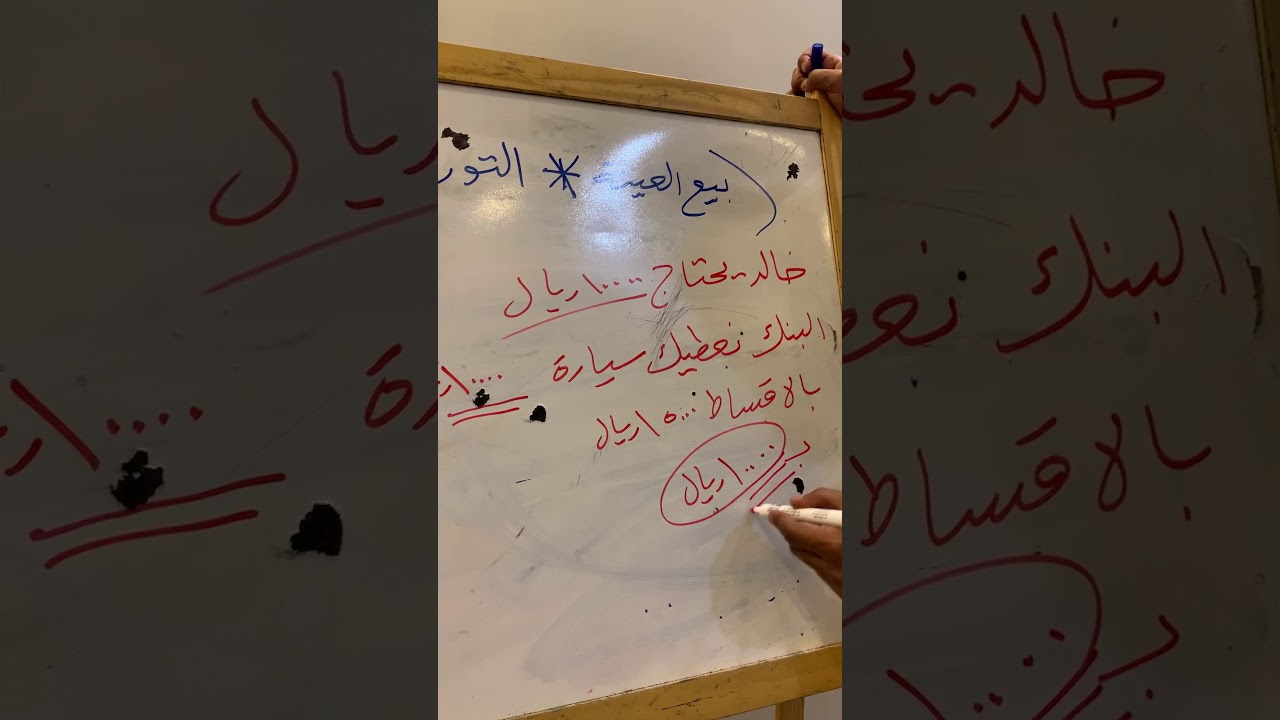 ( بيع العينة * التور
خالد - يحتاج ١٠٠٠٠ ريال
البنك نعطيك سيارة ١٠٠٠٠
بالاقساط ١٥٠٠٠ ريال
بـ ١٠٠٠٠ ريال